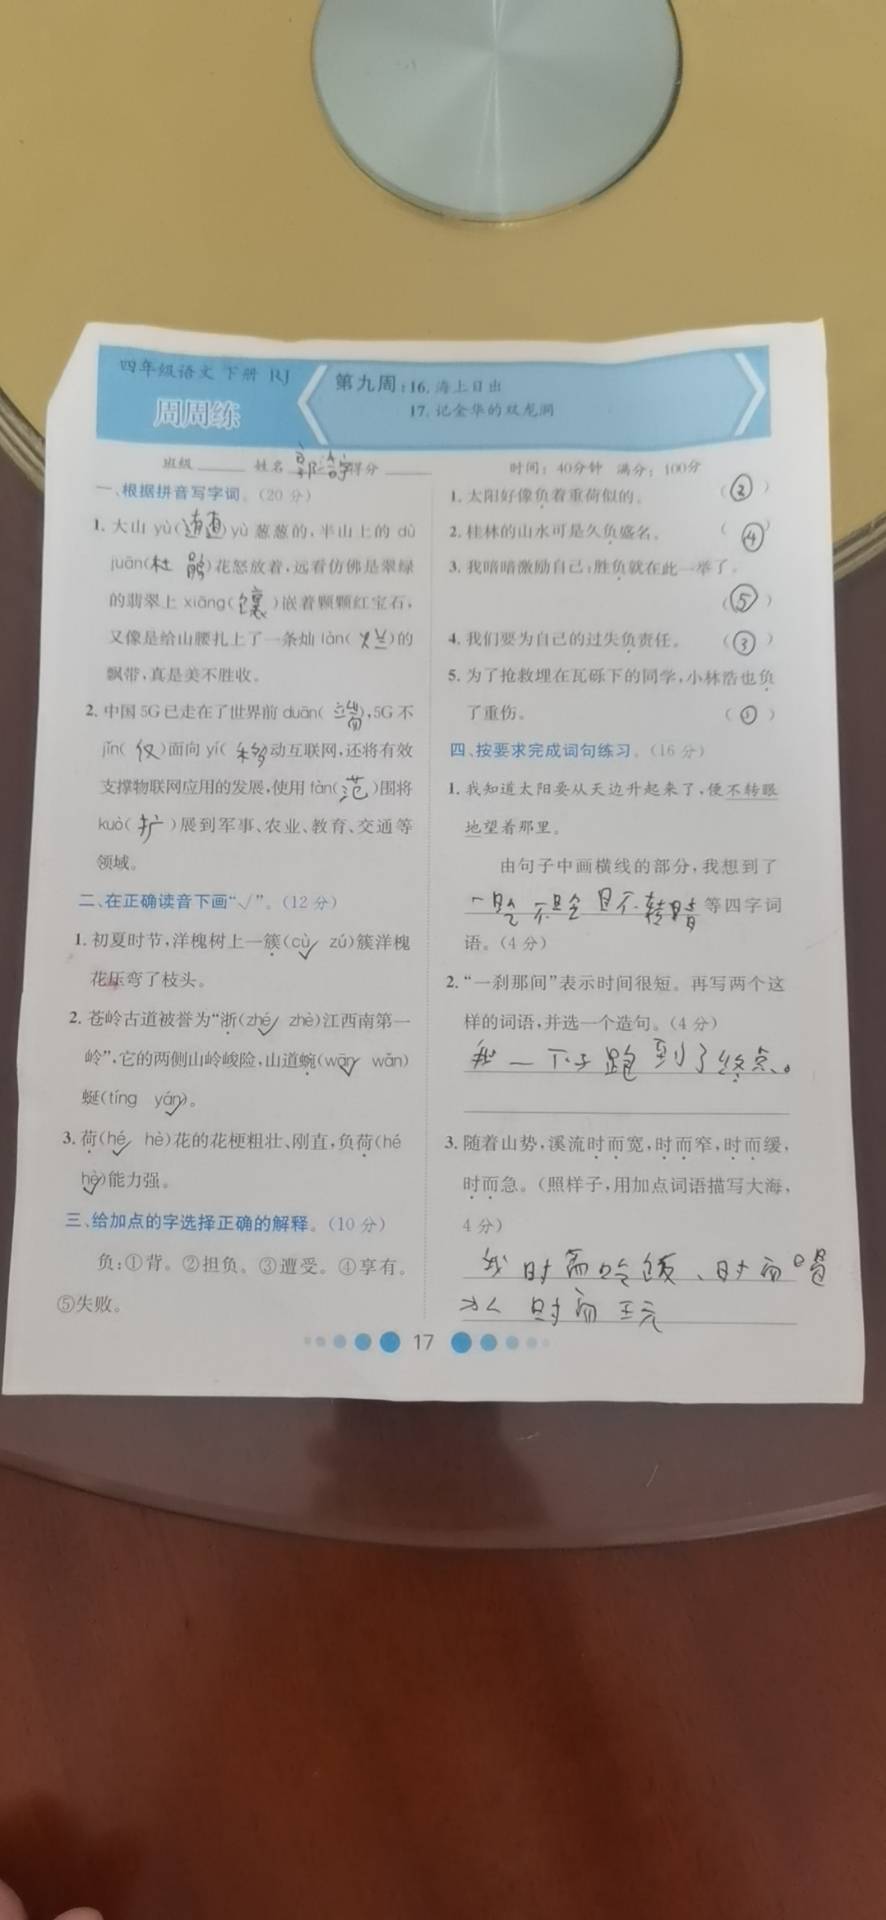 四年级语文 下册 RJ
周周练
第九周:16. 海上日出
17. 记金华的双龙洞
班级 姓名 得分
时间:40分钟 满分:100分
一、根据拼音写字词。(20 分)
1. 大山 yù( )yù 葱葱的,半山上的 dù
juān(杜 鹃)花怒放着,远看仿佛是翠绿
的翡翠上 xiāng( )嵌着颗颗红宝石,
又像是给山腰扎上了一条灿 làn(烂)的
飘带,真是美不胜收。
2. 中国 5G 已走在了世界前 duān(端),5G 不
jǐn(仅)面向 yí(移)动互联网,还将有效
支撑物联网应用的发展,使用 fàn(范)围将
kuò(扩)展到军事、农业、教育、交通等
领域。
二、在正确读音下画“√”。(12 分)
1. 初夏时节,洋槐树上一簇(cù√ zú)簇洋槐
花压弯了枝头。
2. 苍岭古道被誉为“浙(zhé√ zhè)江西南第一
岭”,它的两侧山岭峻险,山道蜿(wān√ wǎn)
蜒(tíng yán√)。
3. 荷(hé√ hè)花的花梗粗壮、刚直,负荷(hé
hè√)能力强。
三、给加点的字选择正确的解释。(10 分)
负:①背。②担负。③遭受。④享有。
⑤失败。
1. 太阳好像负着重荷似的。 (②)
2. 桂林的山水可是久负盛名。 (④)
3. 我暗暗激励自己:胜负就在此一举了。
(⑤)
4. 我们要为自己的过失负责任。 (③)
5. 为了抢救埋在瓦砾下的同学,小林浩也负
了重伤。 (①)
四、按要求完成词句练习。(16 分)
1. 我知道太阳要从天边升起来了,便不转眼
地望着那里。
由句子中画横线的部分,我想到了
目不转睛等四字词
语。(4 分)
2. “一刹那间”表示时间很短。再写两个这
样的词语,并选一个造句。(4 分)
我一下子跑到了终点。
3. 随着山势,溪流时而宽,时而窄,时而缓,
时而急。(照样子,用加点词语描写大海,
4 分)
我时而吃饭、时而喝
水 时而玩
17